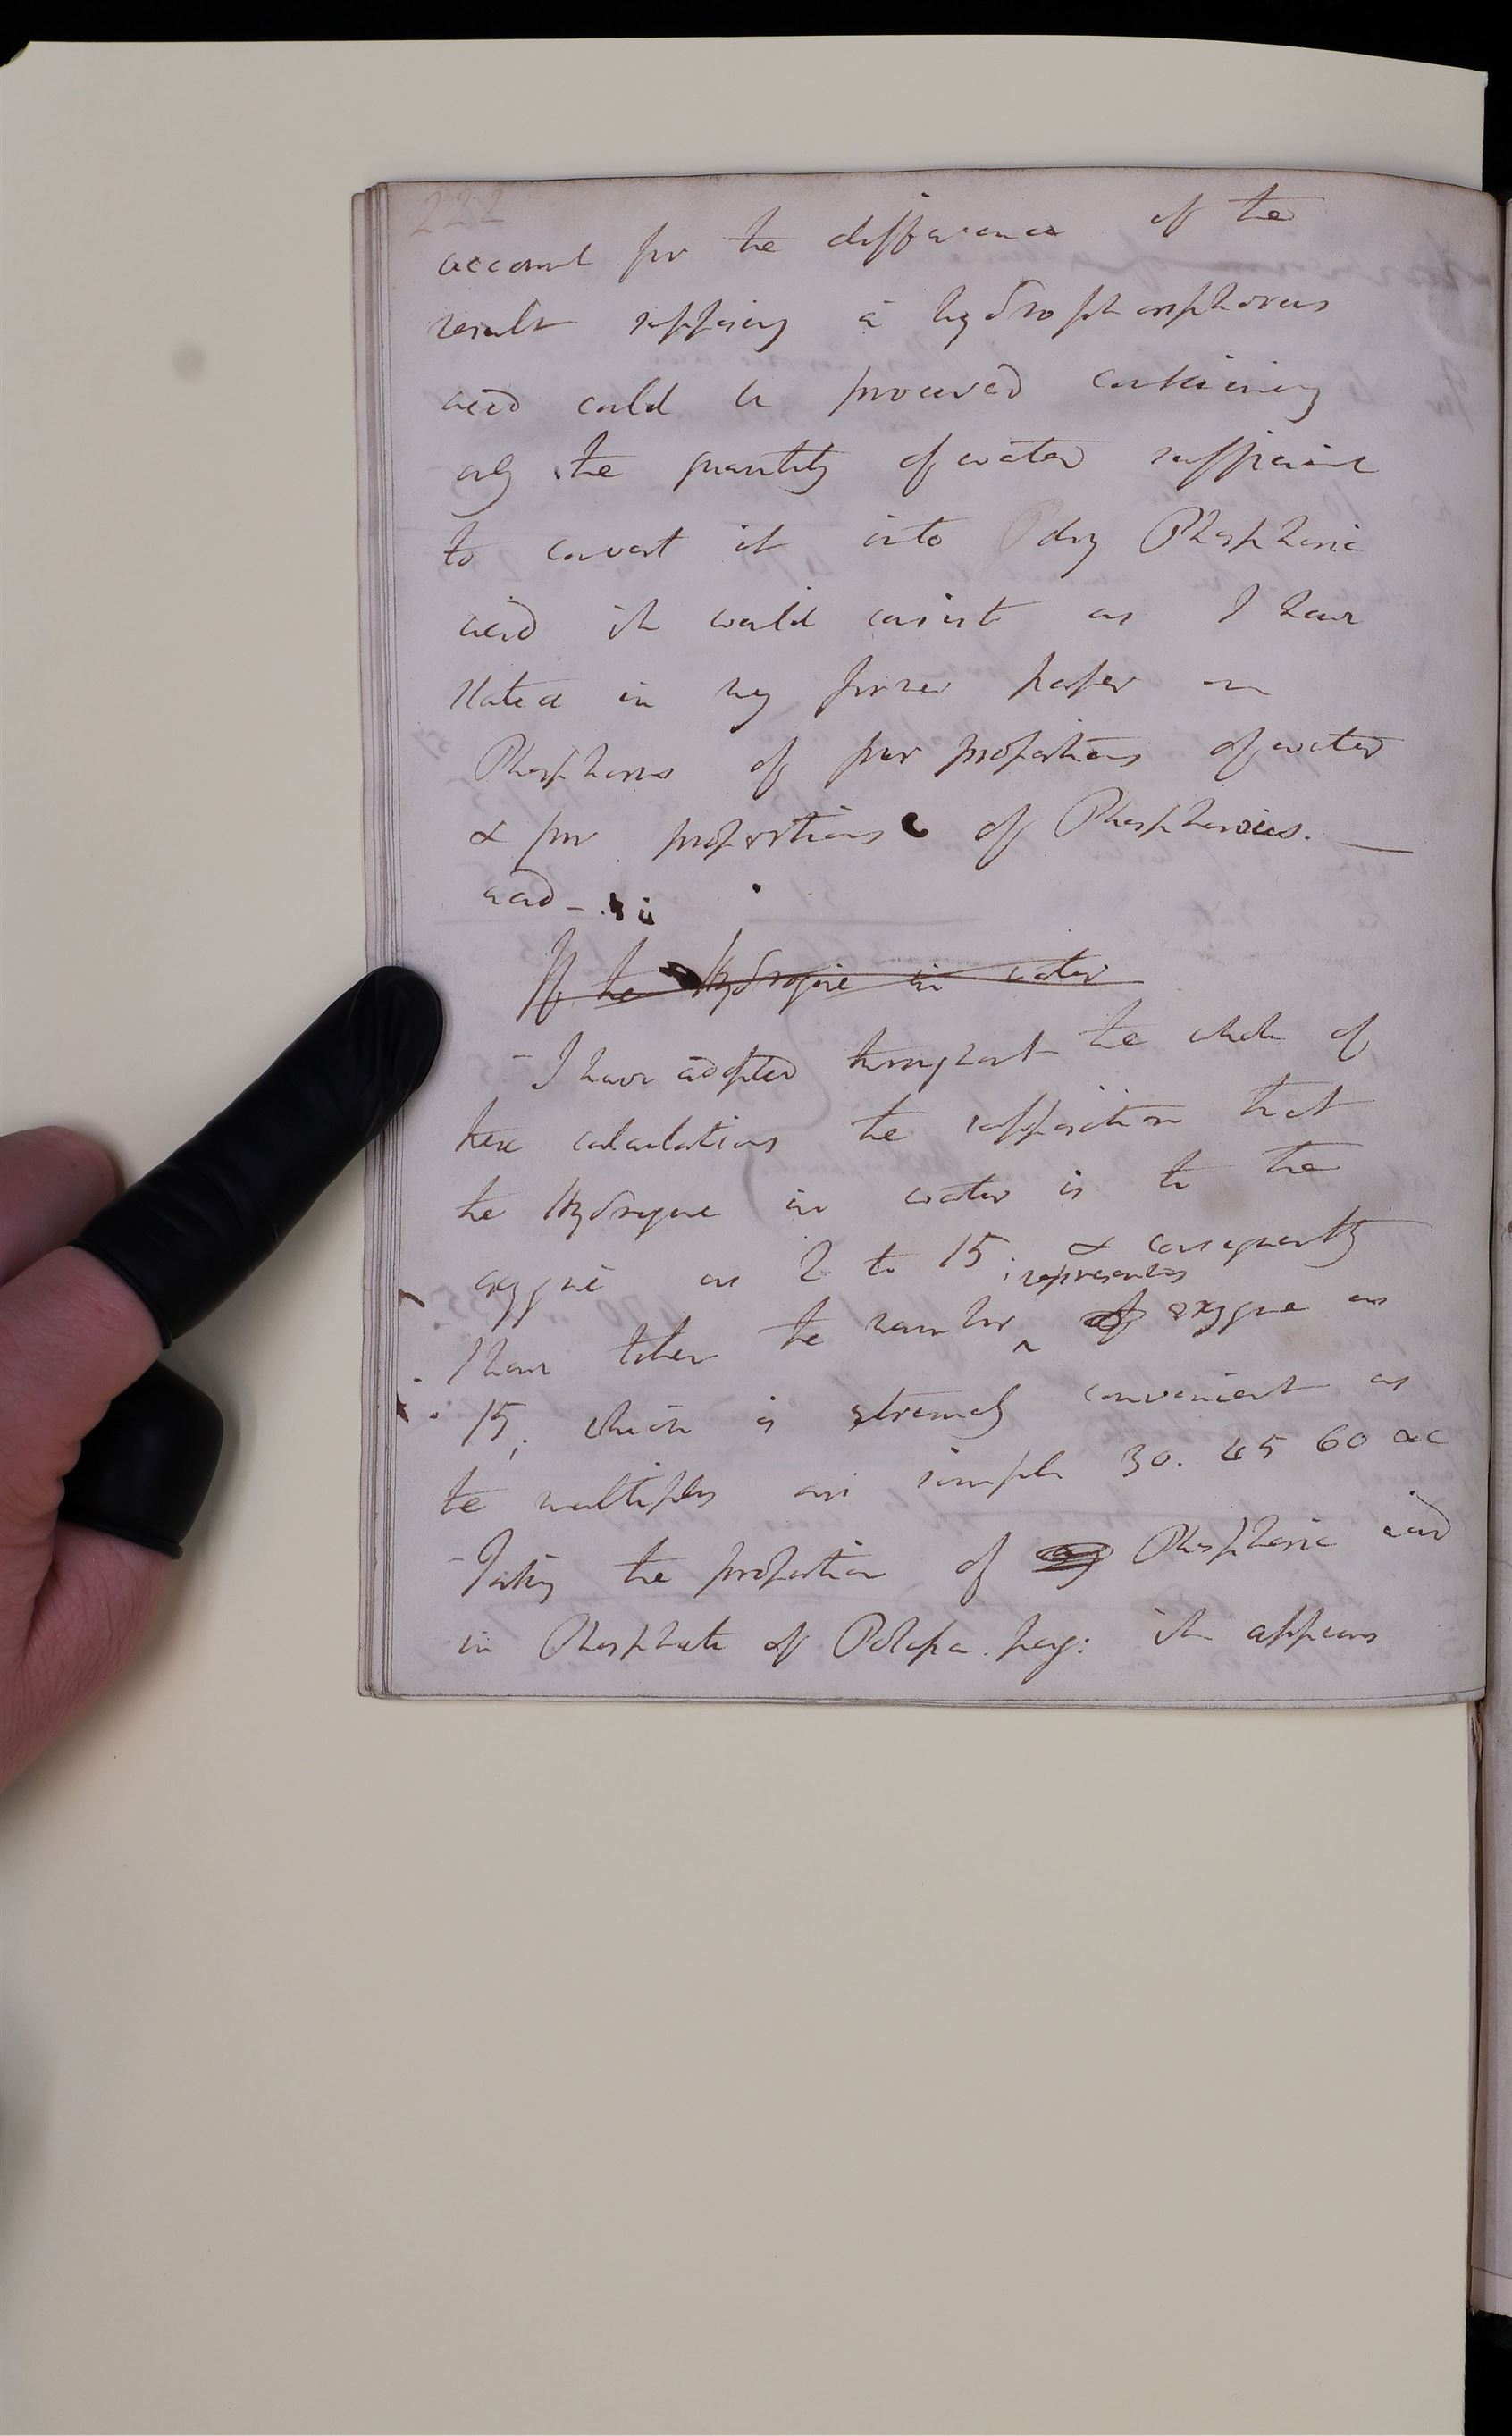 222
account for the difference of the
result supposing a hydrophosphorous
acid could be procured containing
only the quantity of water sufficient
to convert it into dry Phosphoric
acid it would consist as I have
stated in my former paper on
Phosphorus of four proportions of water
& four proportions of Phosphorous.
acid _
If the Hydrogene in water
- I have adopted throughout the whole of
these calculations the supposition that
the Hydrogene in water is to the
oxygene as 2 to 15; & consequently
represents
I have taken the number ^ of oxygene as
15; which is extremely convenient as
the multiples are simple 30. 45 60 &c
- Taking the proportion of Phosphoric acid
in Phosphate of Potassa. it appears